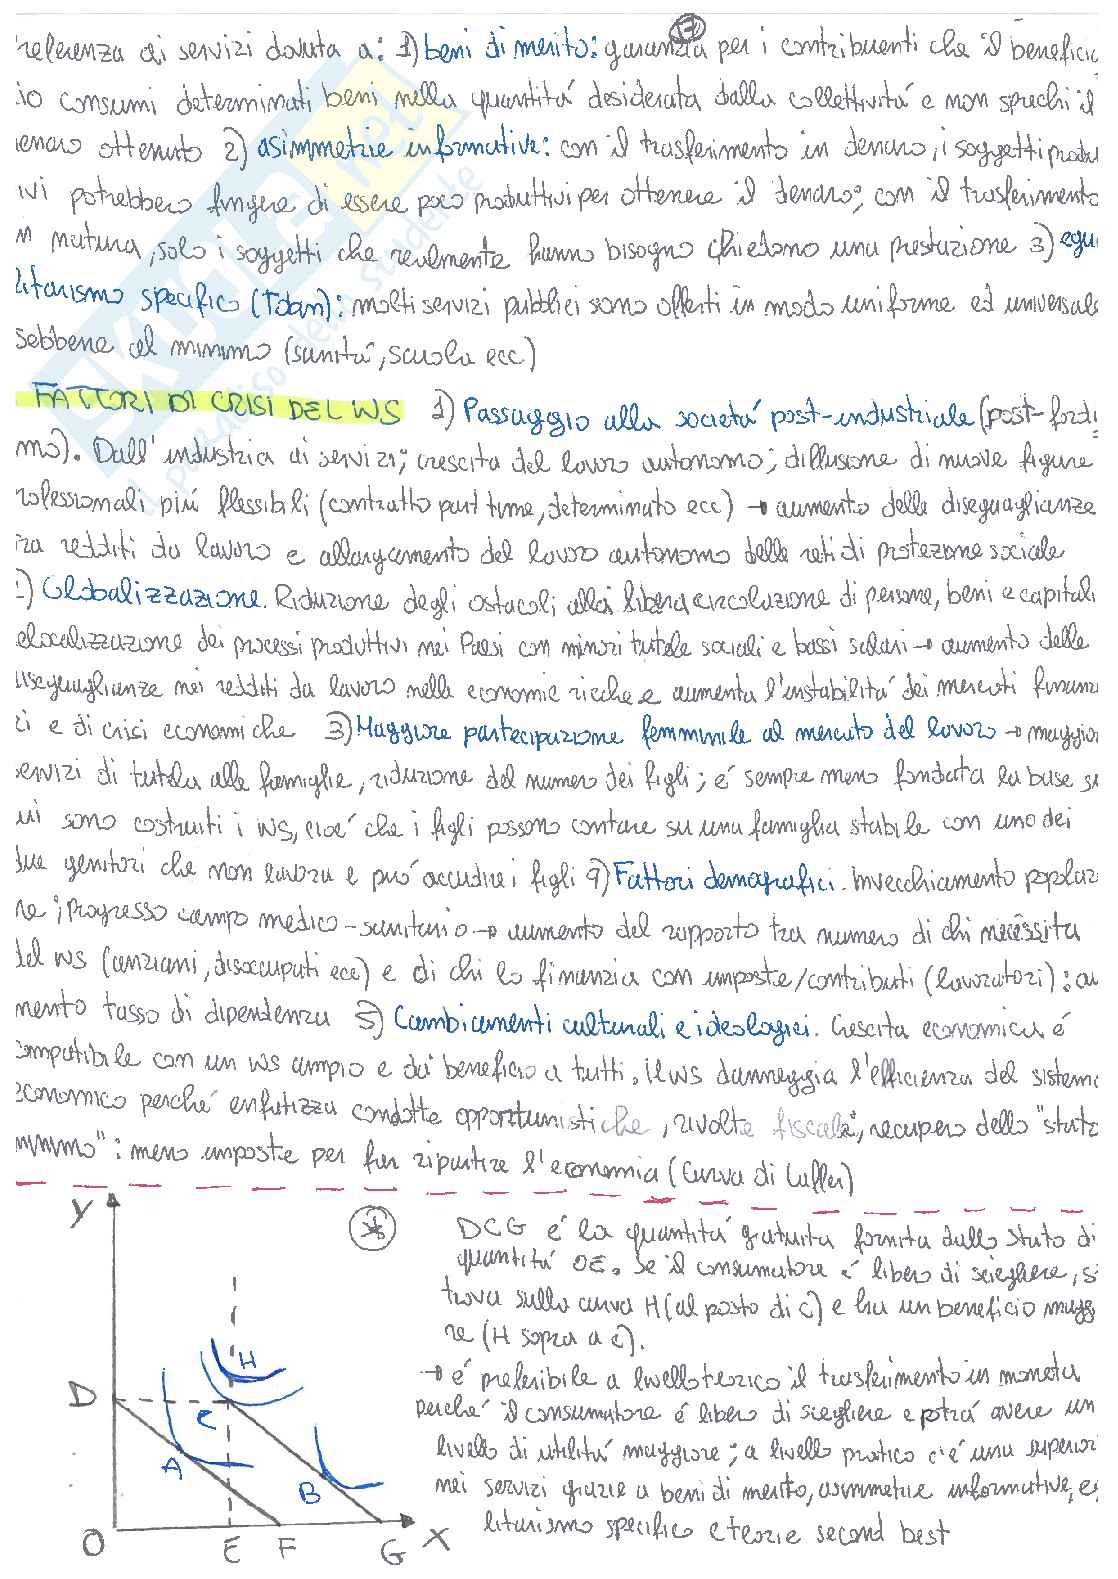 17
referenza ai servizi dovuta a: 1) beni di merito: garanzia per i contribuenti che il beneficia
io consumi determinati beni nella quantità desiderata dalla collettività e non sprechi il
enaro ottenuto 2) asimmetrie informative: con il trasferimento in denaro, i soggetti produt
ivi potrebbero fingere di essere poco produttivi per ottenere il denaro; con il trasferimento
in natura, solo i soggetti che realmente hanno bisogno chiedono una prestazione 3) egua
litarismo specifico (Tobin): molti servizi pubblici sono offerti in modo uniforme ed universale
sebbene al minimo (sanità, scuola ecc)
FATTORI DI CRISI DEL WS 1) Passaggio alla società post-industriale (post-fordi
mo). Dall'industria ai servizi; crescita del lavoro autonomo; diffusione di nuove figure
rofessionali più flessibili (contratto part time, determinato ecc) → aumento delle diseguaglianze
tra redditi da lavoro e allargamento del lavoro autonomo delle reti di protezione sociale
2) Globalizzazione. Riduzione degli ostacoli alla libera circolazione di persone, beni e capitali
elocalizzazione dei processi produttivi nei Paesi con minori tutele sociali e bassi salari → aumento delle
iseguaglianze nei redditi da lavoro nelle economie ricche e aumenta l'instabilità dei mercati finanz
zi e di crisi economiche 3) Maggiore partecipazione femminile al mercato del lavoro → maggior
servizi di tutela alle famiglie, riduzione del numero dei figli; é sempre meno fondata la base su
ui sono costruiti i WS, cioé che i figli possono contare su una famiglia stabile con uno dei
due genitori che non lavora e può accudire i figli 4) Fattori demografici. Invecchiamento popolaz
ne; progresso campo medico-sanitario → aumento del rapporto tra numero di chi necessita
del WS (anziani, disoccupati ecc) e di chi lo finanzia con imposte/contributi (lavoratori): au
mento tasso di dipendenza 5) Cambiamenti culturali e ideologici. Crescita economica é
compatibile con un WS ampio e dà beneficio a tutti. Il WS danneggia l'efficienza del sistema
economico perché enfatizza condotte opportunistiche, rivolte fiscale, recupero dello "stato
minimo": meno imposte per far ripartire l'economia (Curva di Laffer)
Y
D
O
A
C
H
B
E
F
G
X
* DCG é la quantità gratuita fornita dallo Stato di
quantità OE. Se il consumatore é libero di scegliere, si
trova sulla curva H (al posto di C) e ha un beneficio magg
re (H sopra a C).
→ é preferibile a livello teorico il trasferimento in moneta
perché il consumatore é libero di scegliere e potrà avere un
livello di utilità maggiore; a livello pratico c'é una superiori
nei servizi grazie a beni di merito, asimmetrie informative, eg
litarismo specifico e teorie second best
SKUOLA.net
il paradiso dello studente